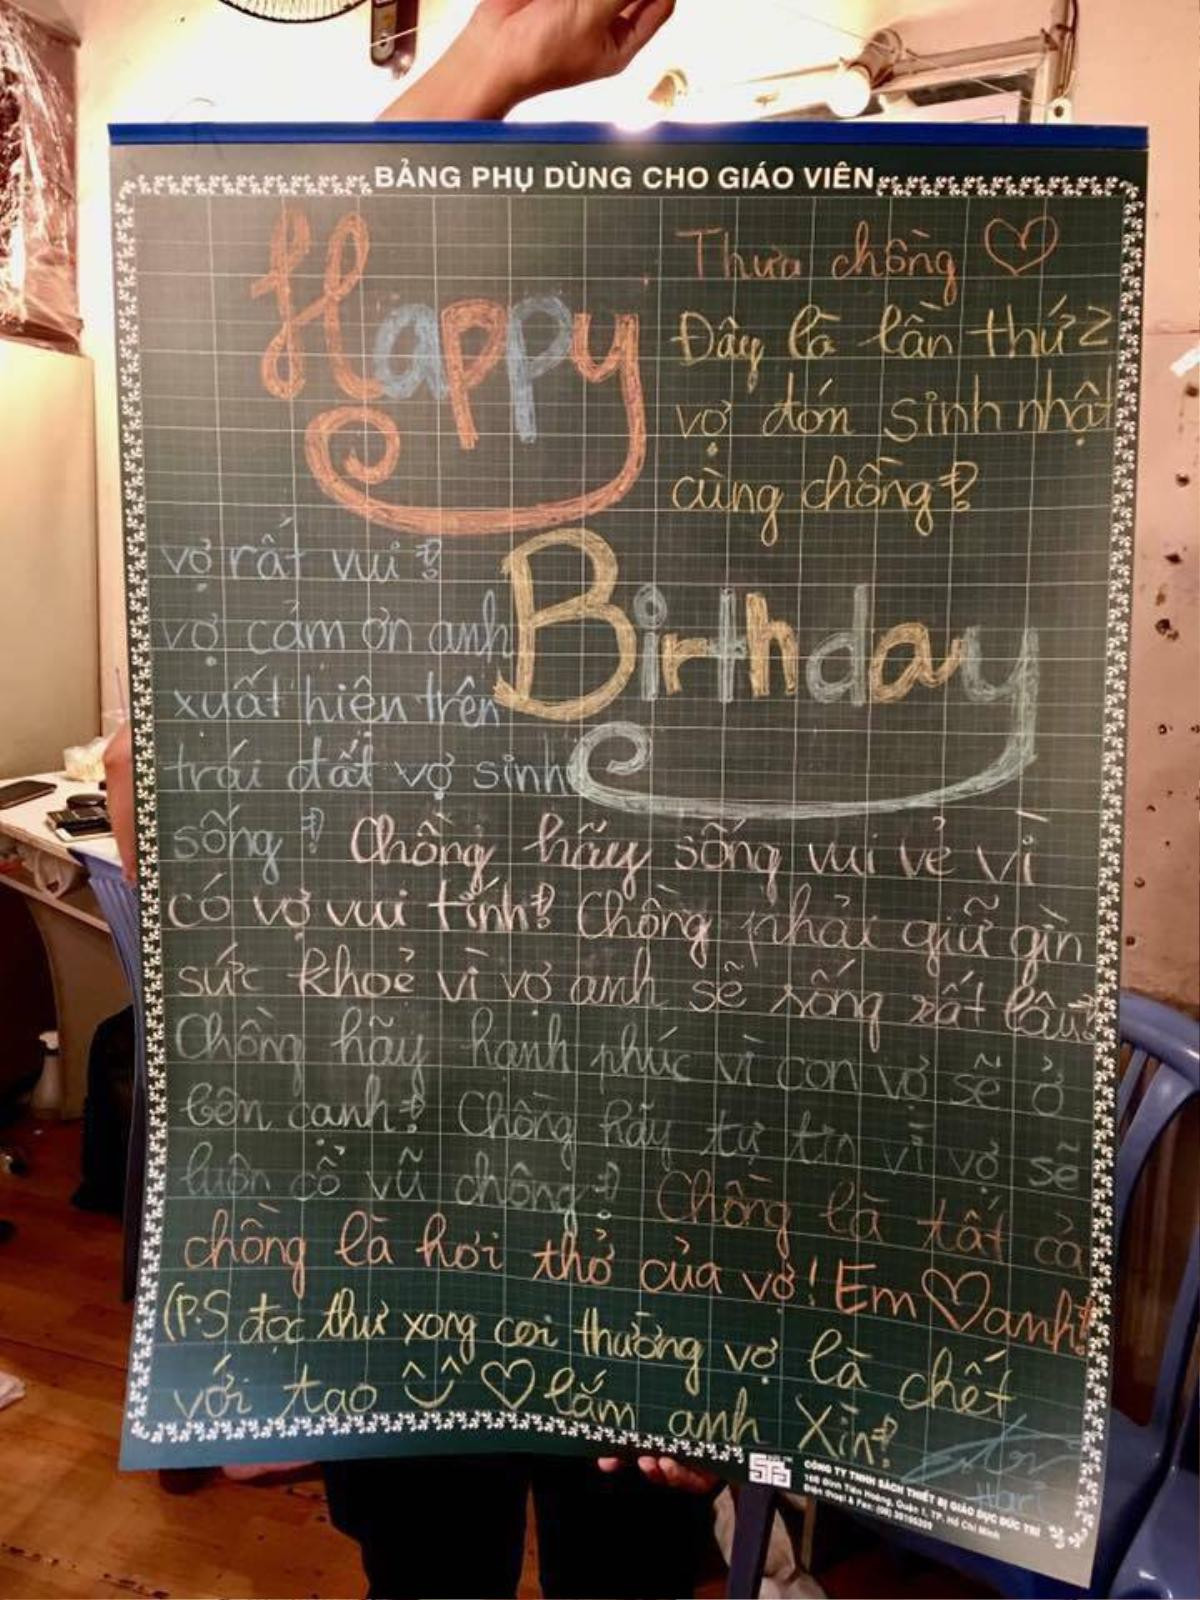 BẢNG PHỤ DÙNG CHO GIÁO VIÊN
Happy
Thưa chồng
Đây là lần thứ 2
vợ đón sinh nhật
cùng chồng!
Birthday
vợ rất vui!
vợ cảm ơn anh
xuất hiện trên
trái đất vợ sinh
sống! Chồng hãy sống vui vẻ vì
có vợ vui tính! Chồng phải giữ gìn
sức khoẻ vì vợ anh sẽ sống rất lâu!
Chồng hãy hạnh phúc vì con vợ sẽ ở
bên cạnh! Chồng hãy tự tin vì vợ sẽ
luôn cổ vũ chồng! Chồng là tất cả
chồng là hơi thở của vợ! Em ♡ anh!
(P.S đọc thư xong coi thường vợ là chết
với tao ♡ lắm anh Xìn!
Hari
STB
CÔNG TY TNHH SÁCH THIẾT BỊ GIÁO DỤC ĐỨC TRÍ
Đinh Tiên Hoàng, Quận 1, TP. Hồ Chí Minh
Điện thoại & Fax: (08)